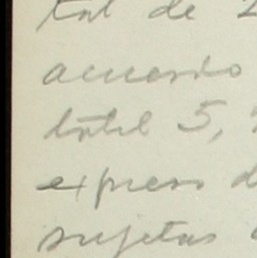 tal de 2
acuerdo
total 5,
expreso d
sujetas